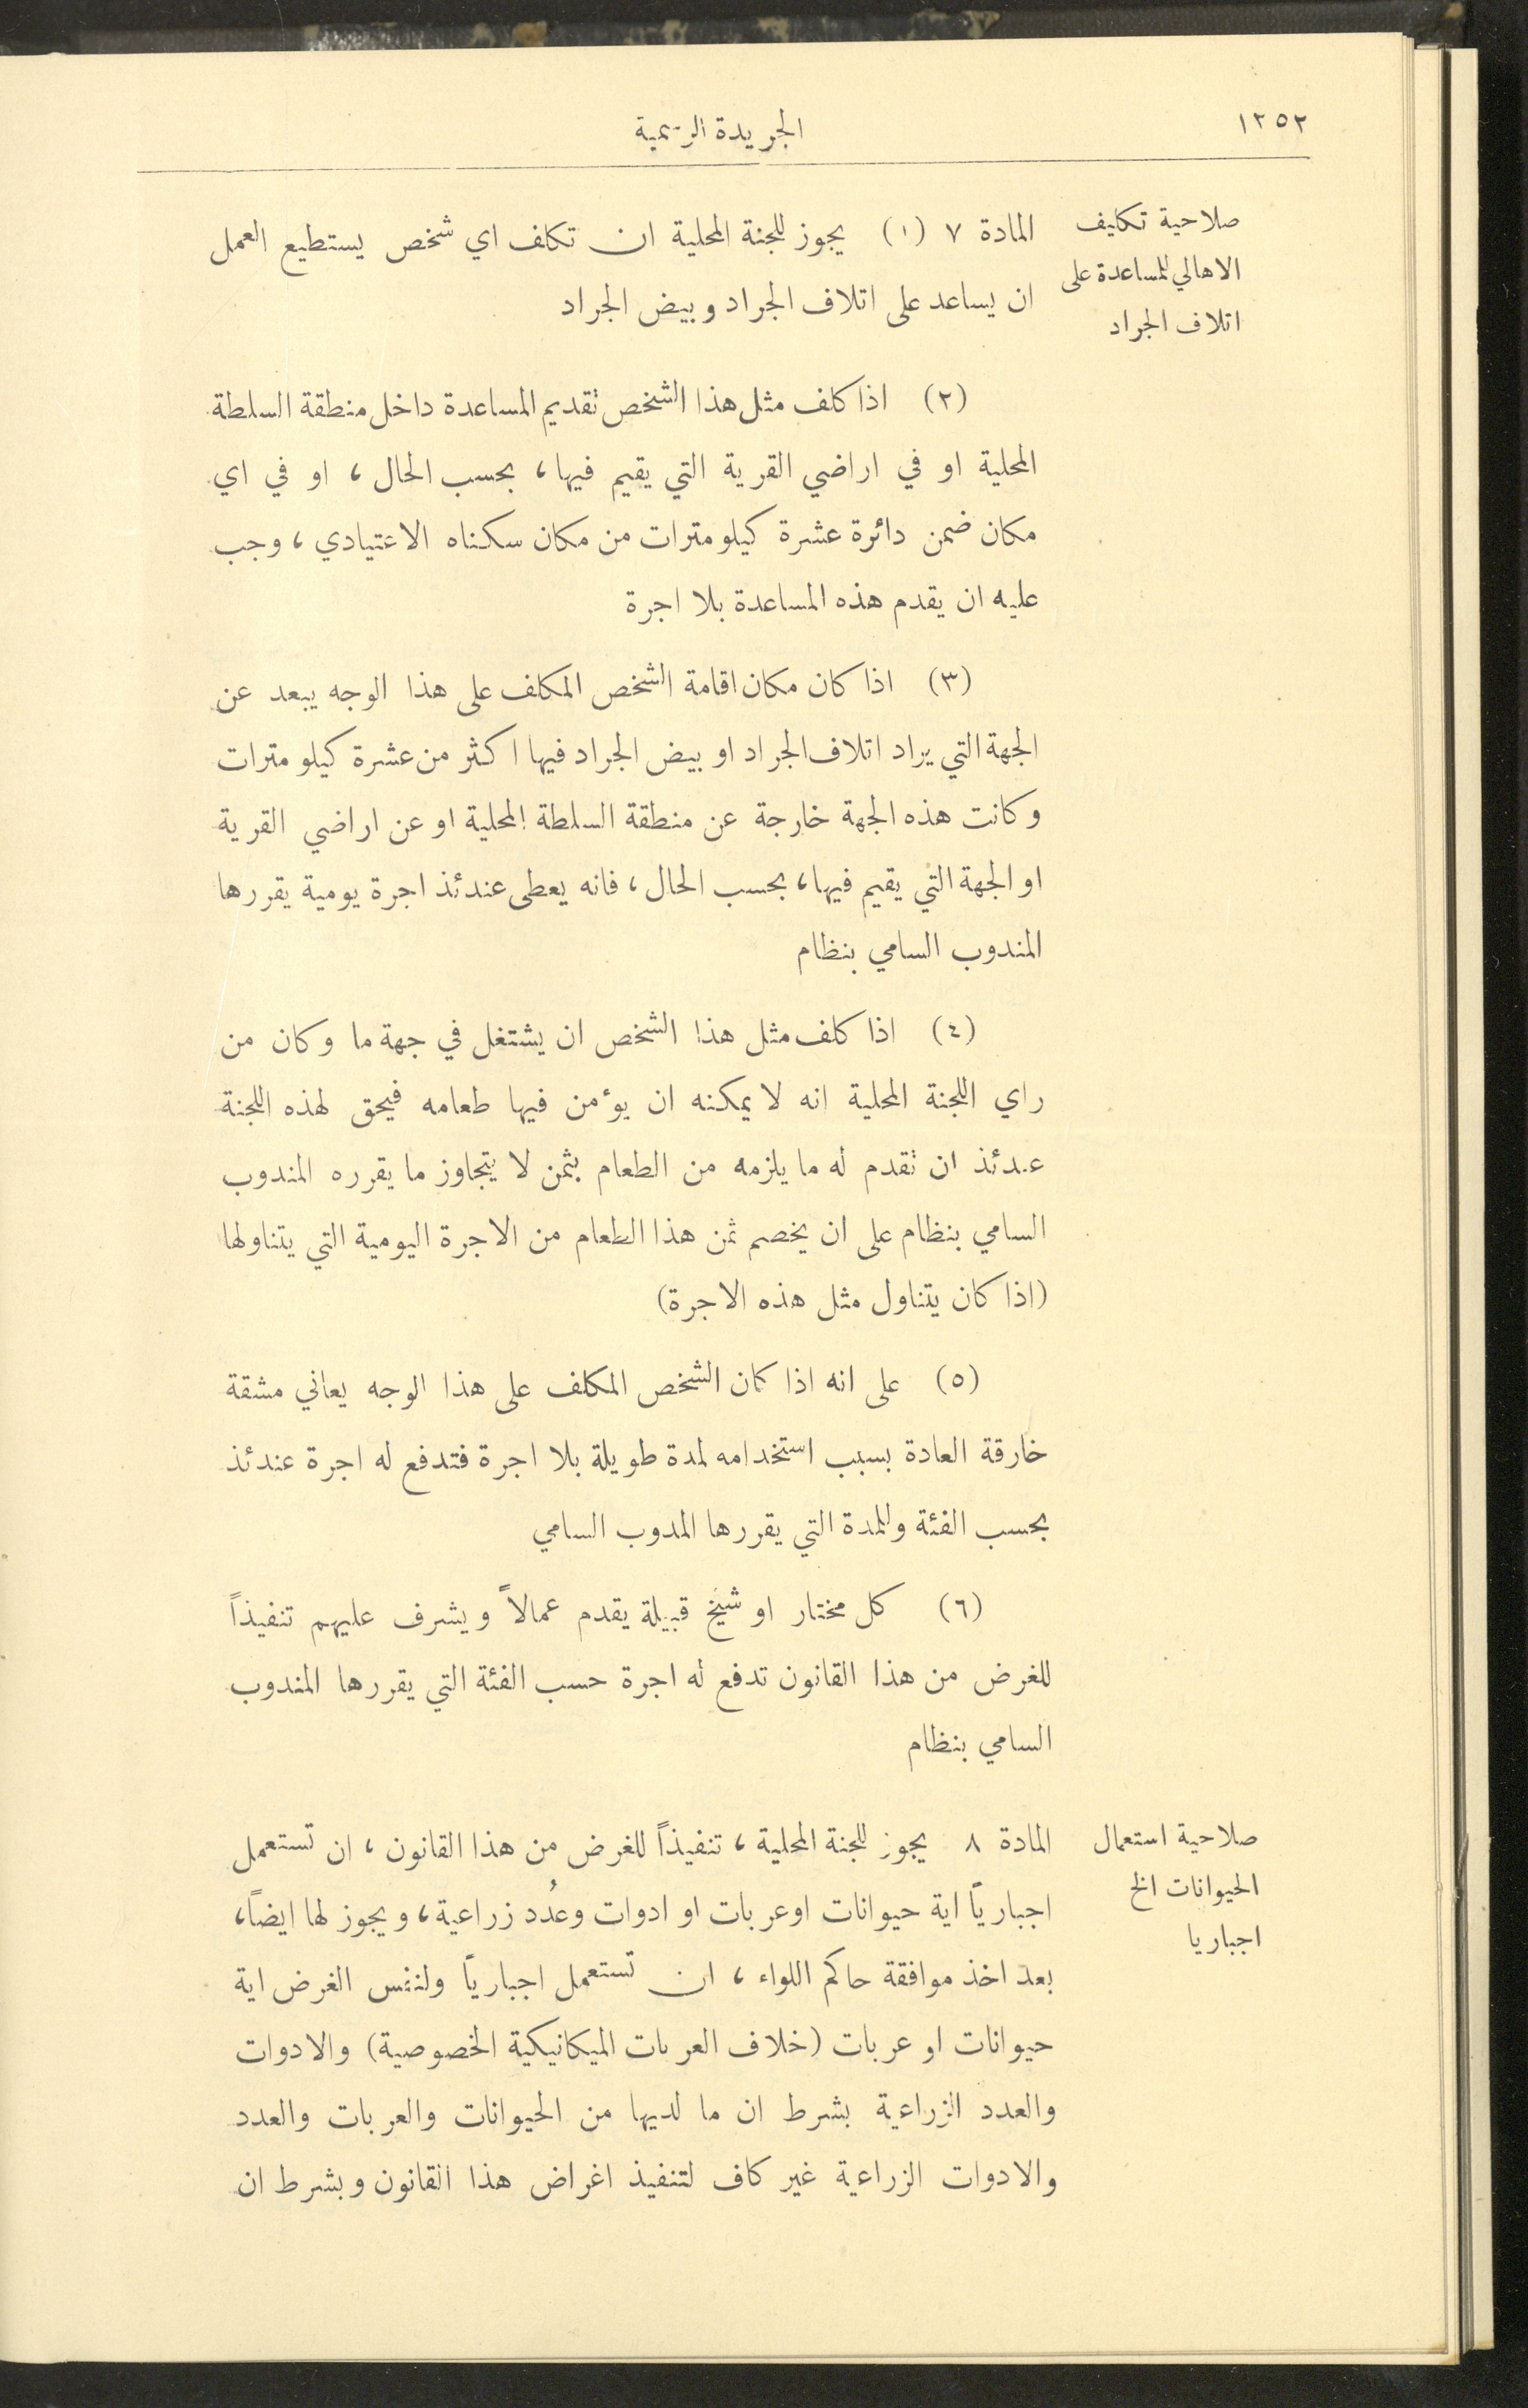 ١٢٥٢
الجريدة الرسمية
صلاحية تكليف
الاهالي للمساعدة على
اتلاف الجراد
المادة ٧ (١) يجوز للجنة المحلية ان تكلف اي شخص يستطيع العمل
ان يساعد على اتلاف الجراد وبيض الجراد
(٢) اذا كلف مثل هذا الشخص تقديم المساعدة داخل منطقة السلطة
المحلية او في اراضي القرية التي يقيم فيها، بحسب الحال، او في اي
مكان ضمن دائرة عشرة كيلو مترات من مكان سكناه الاعتيادي، وجب
عليه ان يقدم هذه المساعدة بلا اجرة
(٣) اذا كان مكان اقامة الشخص المكلف على هذا الوجه يبعد عن
الجهة التي يراد اتلاف الجراد او بيض الجراد فيها اكثر من عشرة كيلو مترات
وكانت هذه الجهة خارجة عن منطقة السلطة المحلية او عن اراضي القرية
او الجهة التي يقيم فيها، بحسب الحال، فانه يعطى عندئذ اجرة يومية يقررها
المندوب السامي بنظام
(٤) اذا كلف مثل هذا الشخص ان يشتغل في جهة ما وكان من
راي اللجنة المحلية انه لا يمكنه ان يؤمن فيها طعامه فيحق لهذه اللجنة
عندئذ ان تقدم له ما يلزمه من الطعام بثمن لا يتجاوز ما يقرره المندوب
السامي بنظام على ان يخصم ثمن هذا الطعام من الاجرة اليومية التي يتناولها
(اذا كان يتناول مثل هذه الاجرة)
(٥) على انه اذا كان الشخص المكلف على هذا الوجه يعاني مشقة
خارقة العادة بسبب استخدامه لمدة طويلة بلا اجرة فتدفع له اجرة عندئذ
بحسب الفئة والمدة التي يقررها المدوب السامي
(٦) كل مختار او شيخ قبيلة يقدم عمالاً ويشرف عليهم تنفيذاً
للغرض من هذا القانون تدفع له اجرة حسب الفئة التي يقررها المندوب
السامي بنظام
صلاحية استعمال
الحيوانات الخ
اجباريا
المادة ٨ يجوز للجنة المحلية، تنفيذاً للغرض من هذا القانون، ان تستعمل
اجبارياً اية حيوانات او عربات او ادوات وعُدد زراعية، ويجوز لها ايضاً،
بعد اخذ موافقة حاكم اللواء، ان تستعمل اجبارياً ولنفس الغرض اية
حيوانات او عربات (خلاف العربات الميكانيكية الخصوصية) والادوات
والعدد الزراعية بشرط ان ما لديها من الحيوانات والعربات والعدد
والادوات الزراعية غير كاف لتنفيذ اغراض هذا القانون وبشرط ان